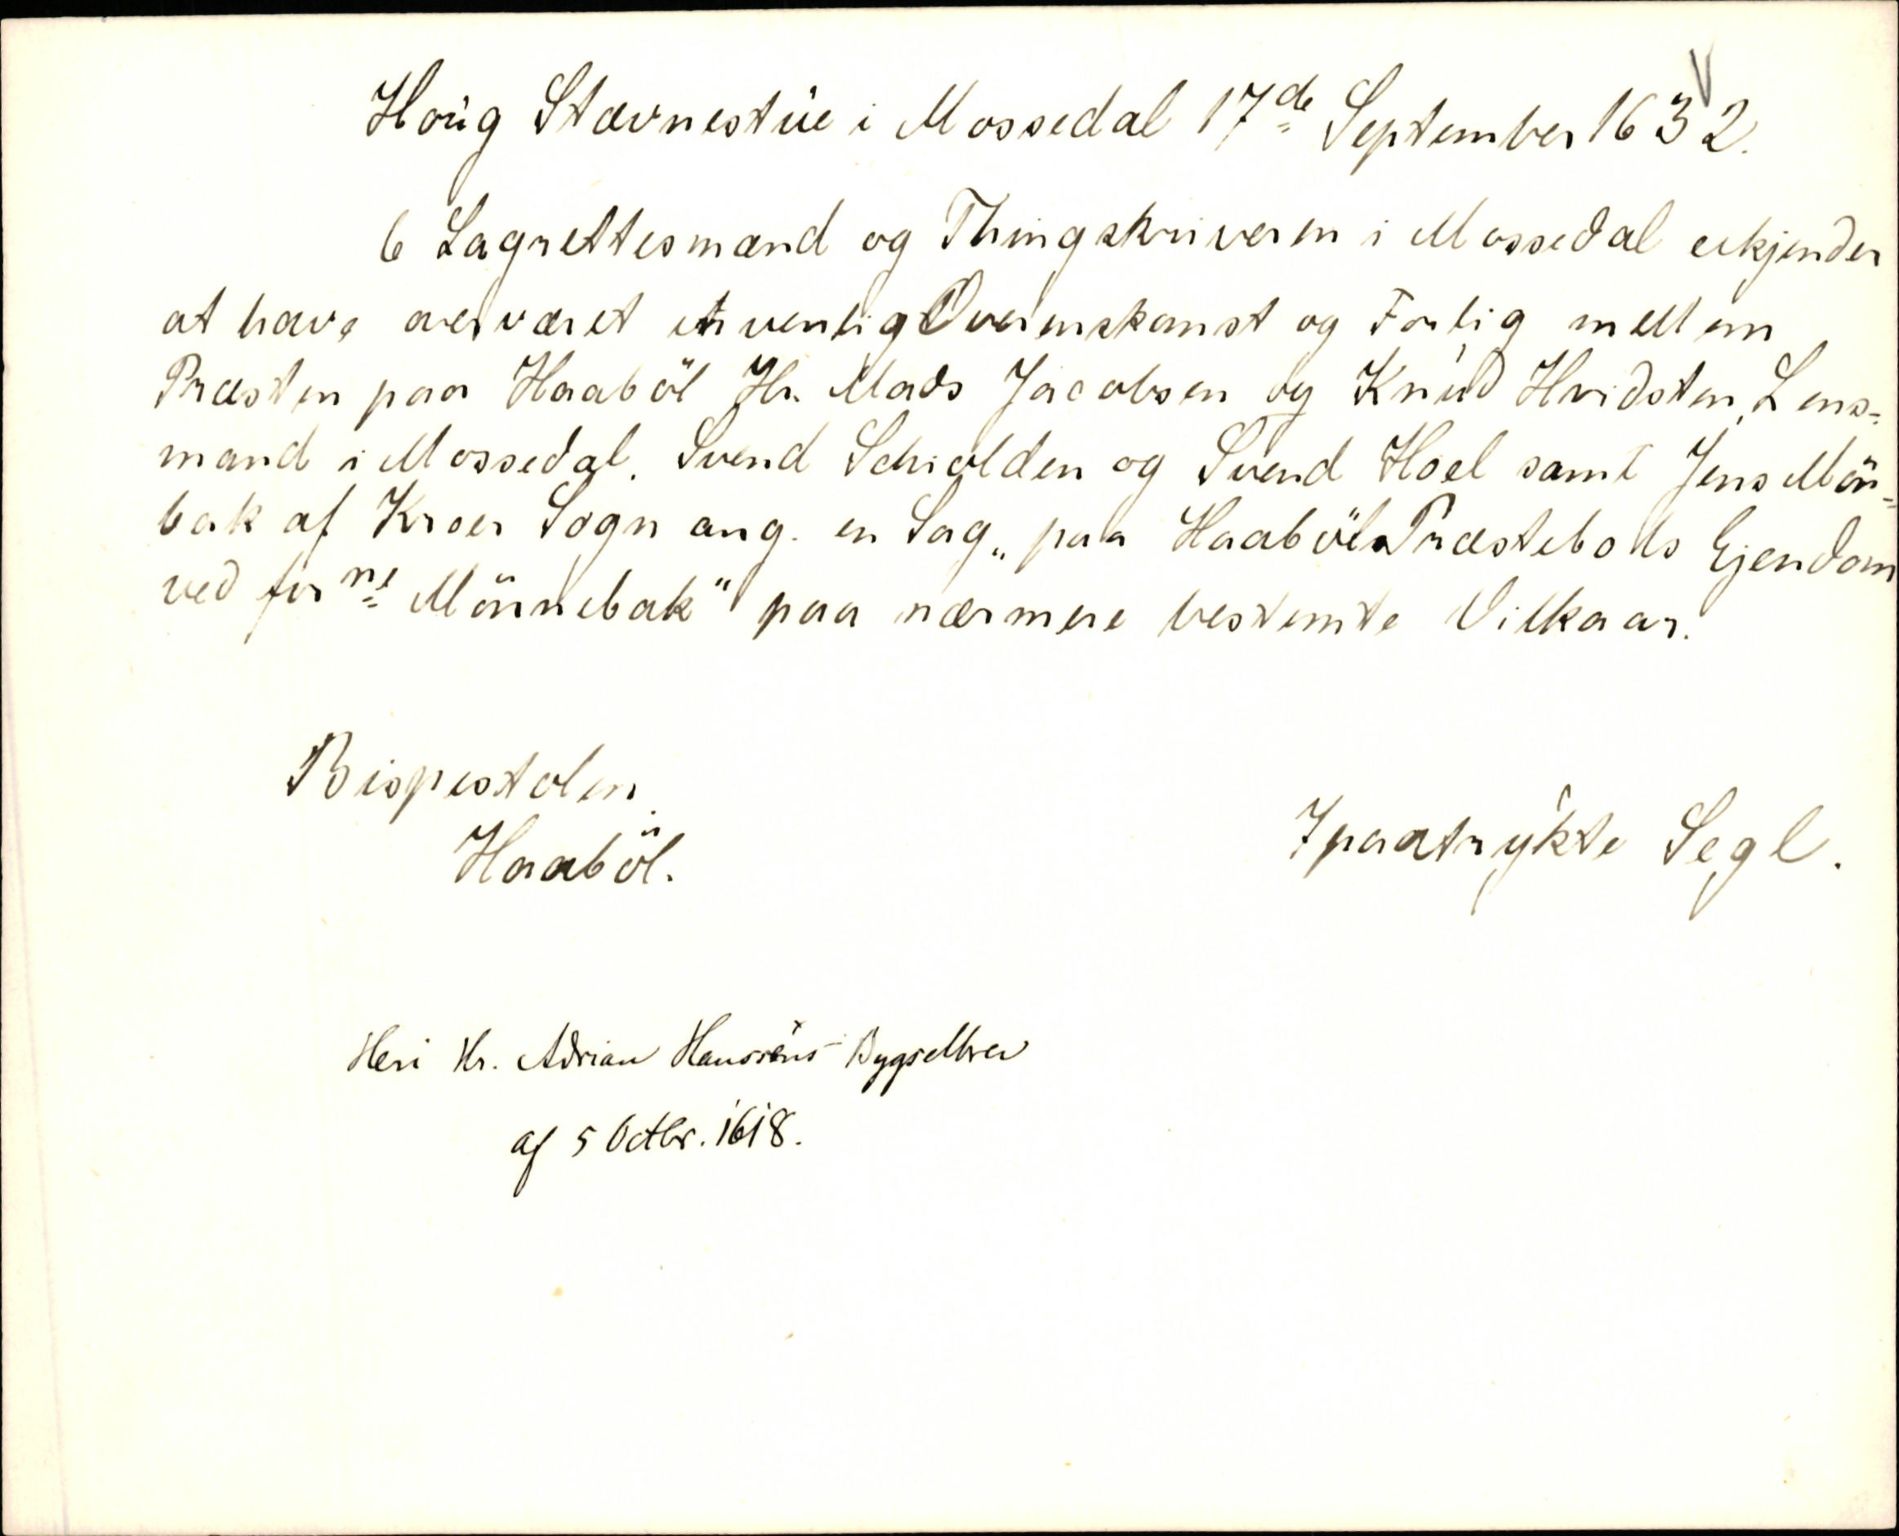 Houg Stævnestue i Mossedal 17de September 1632.
6 Lagrettesmænd og Thingskriveren i Mossedal erkjender
at have overværet en venlig Overenskomst og Forlig mellem
Præsten paa Haaböl Hr. Mads Jacobsen og Knud Hvidsten, Lens=
mand i Mossedal. Svend Schiolden og Svend Hoel samt Jens Mön=
bak af Kroer Sogn ang. en Sag „paa Haaböls Præstebols Ejendom
ved forne Mönnebak" paa nærmere bestemte Vilkaar.
Bispestolen.
Haaböl.
7 paatrykte Segl.
Heri Hr. Adrian Hanssens Bygselbrev
af 5 Octbr. 1618.